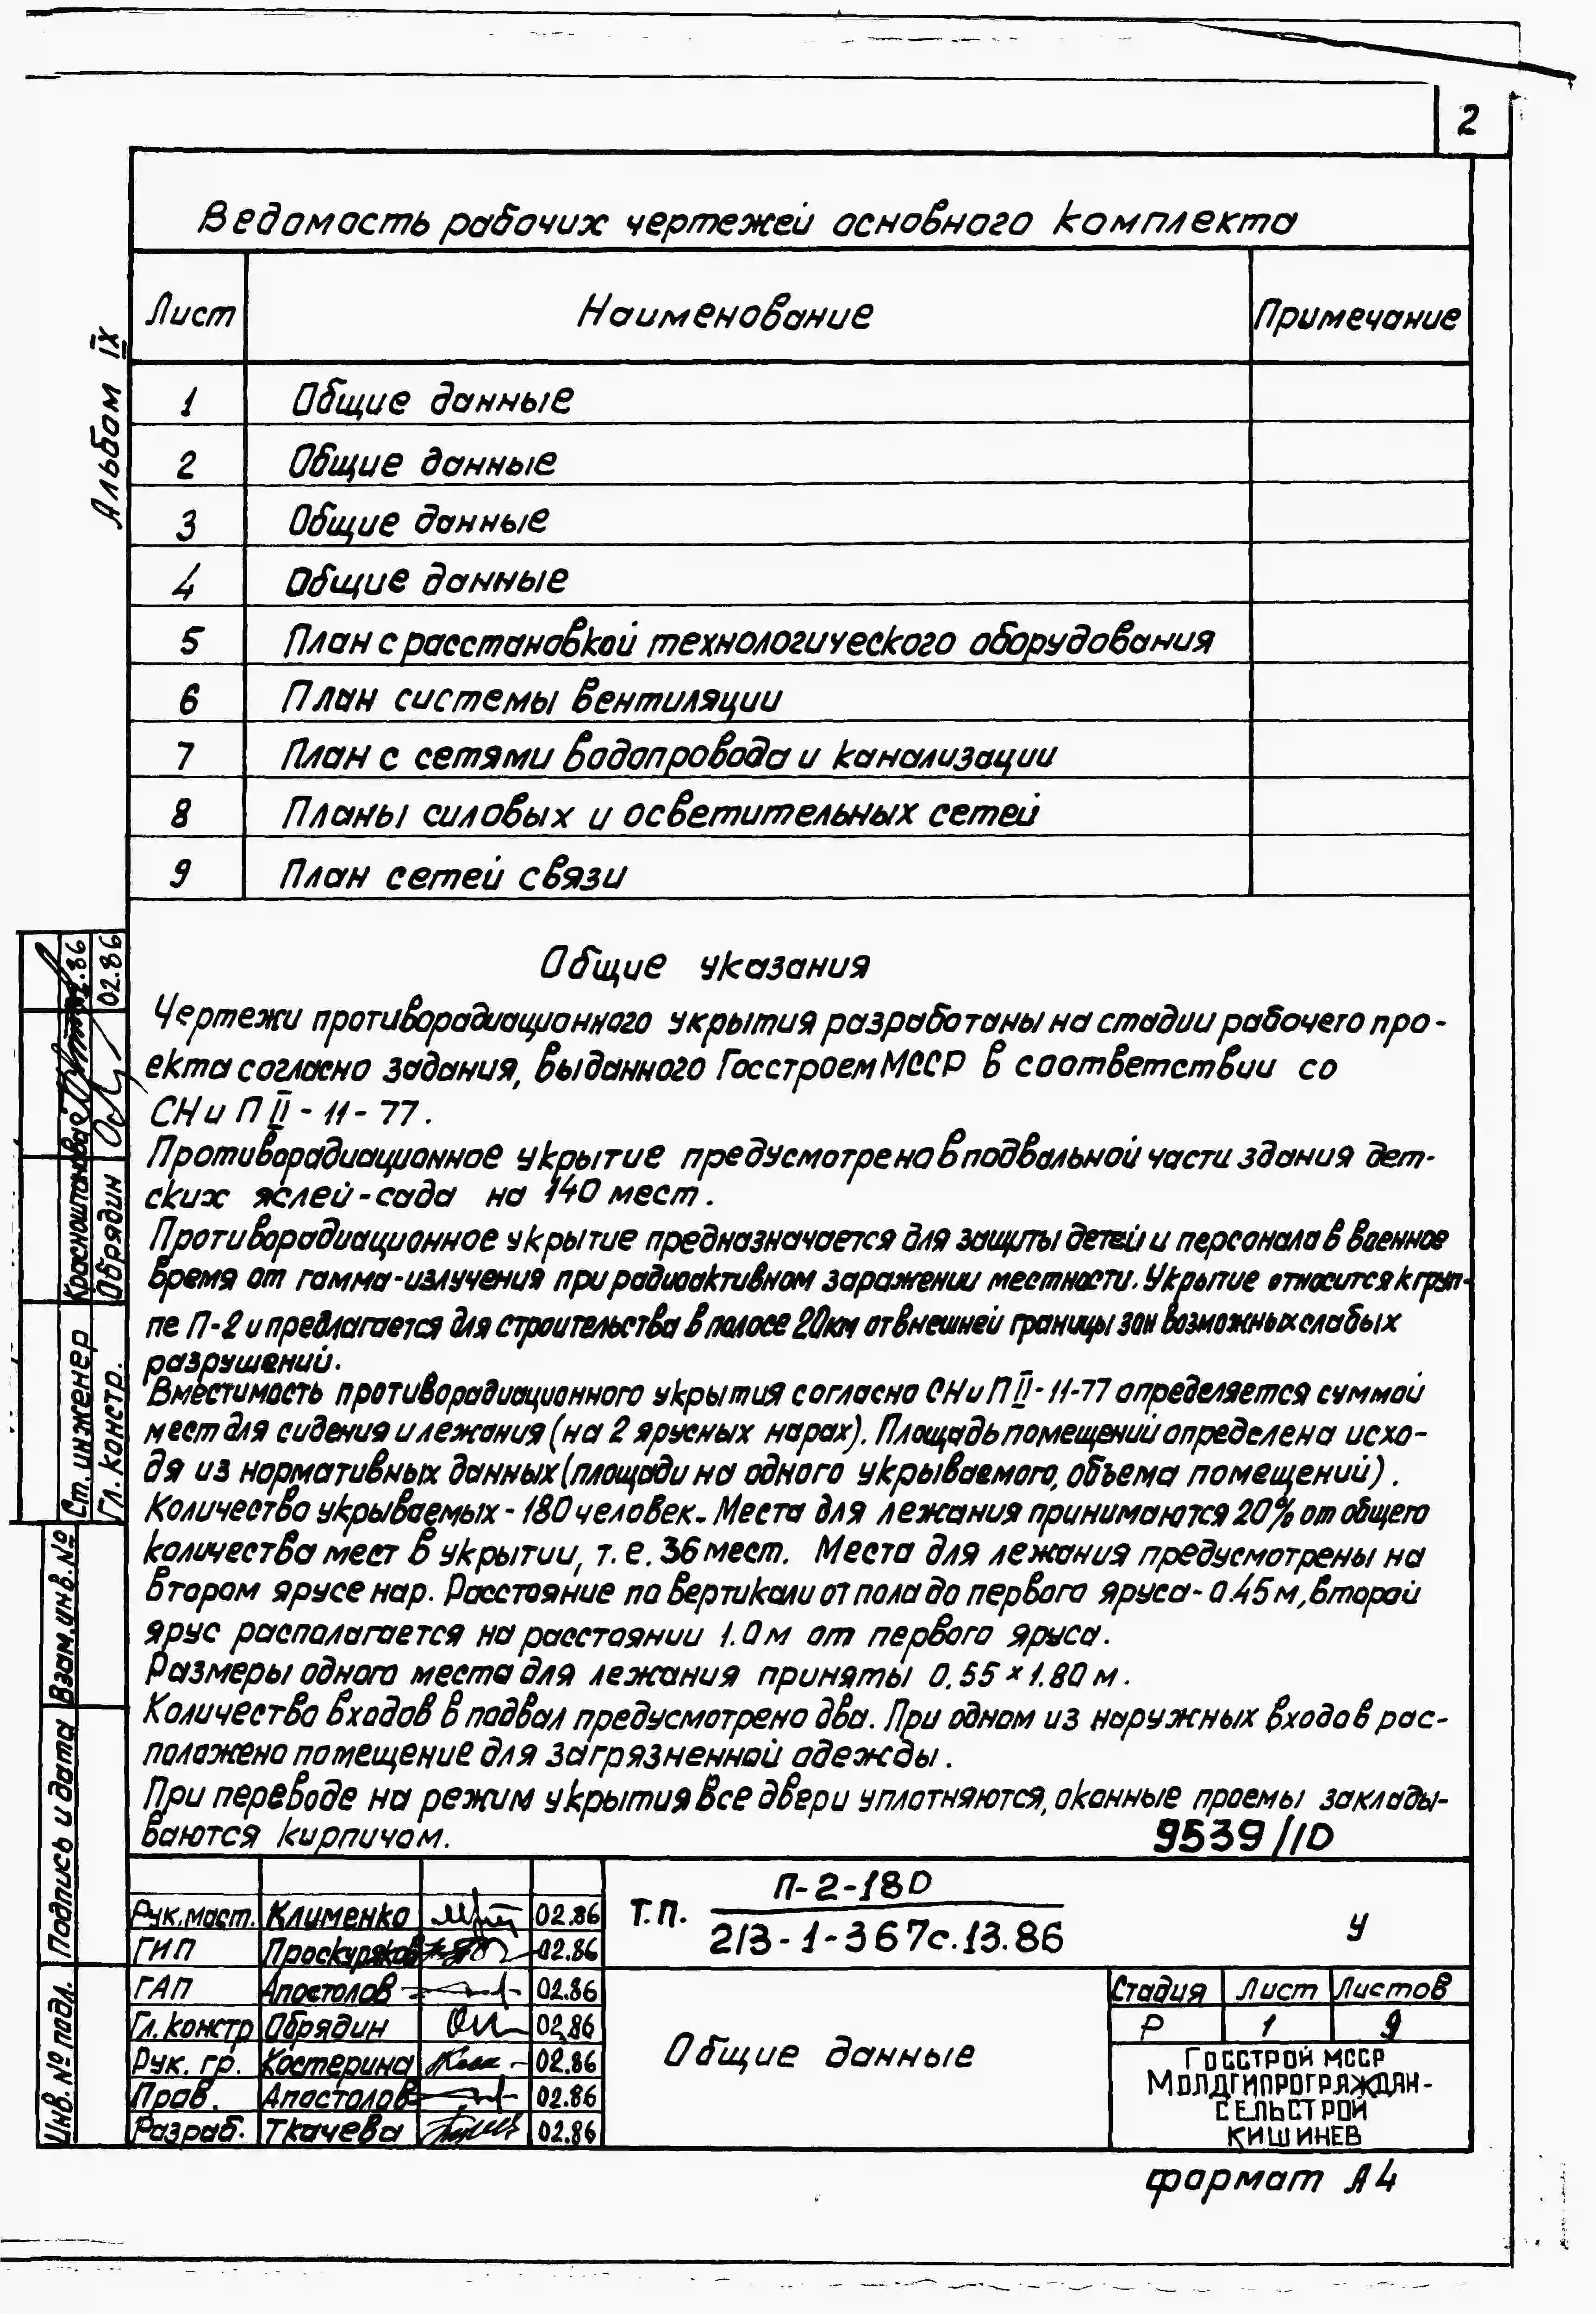 2
Ведомость рабочих чертежей основного комплекта
Лист Наименование Примечание
1 Общие данные
2 Общие данные
3 Общие данные
4 Общие данные
5 План с расстановкой технологического оборудования
6 План системы вентиляции
7 План с сетями водопровода и канализации
8 Планы силовых и осветительных сетей
9 План сетей связи
Альбом IX
Общие указания
Чертежи противорадиационного укрытия разработаны на стадии рабочего про-
екта согласно задания, выданного Госстроем МССР в соответствии со
СНиП II-11-77.
Противорадиационное укрытие предусмотрено в подвальной части здания дет-
ских яслей-сада на 140 мест.
Противорадиационное укрытие предназначается для защиты детей и персонала в военное
время от гамма-излучения при радиоактивном заражении местности. Укрытие относится к груп-
пе П-2 и предлагается для строительства в полосе 20км от внешней границы зон возможных слабых
разрушений.
Вместимость противорадиационного укрытия согласно СНиП II-11-77 определяется суммой
мест для сидения и лежания (на 2 ярусных нарах). Площадь помещений определена исхо-
дя из нормативных данных (площади на одного укрываемого, объема помещений).
Количество укрываемых - 180 человек. Места для лежания принимаются 20% от общего
количества мест в укрытии, т.е. 36 мест. Места для лежания предусмотрены на
втором ярусе нар. Расстояние по вертикали от пола до первого яруса - 0.45м, второй
ярус располагается на расстоянии 1.0м от первого яруса.
Размеры одного места для лежания приняты 0.55×1.80м.
Количество входов в подвал предусмотрено два. При одном из наружных входов рас-
положено помещение для загрязненной одежды.
При переводе на режим укрытия все двери уплотняются, оконные проемы заклады-
ваются кирпичом.
9539/10
Ст. инженер Красноштанова 02.86
Гл. констр. Обрядин 02.86
Взам.инв.№
Подпись и дата
Инв.№ подл.
Рук.маст. Клименко 02.86
ГИП Проскуряков 02.86
ГАП Апостолов 02.86
Гл.констр Обрядин 02.86
Рук. гр. Костерина 02.86
Пров. Апостолов 02.86
Разраб. Ткачева 02.86
т.п. П-2-180
213-1-367с.13.86
У
Общие данные
Стадия Лист Листов
Р 1 9
Госстрой МССР
Молдгипрограждан-
сельстрой
Кишинев
формат А4